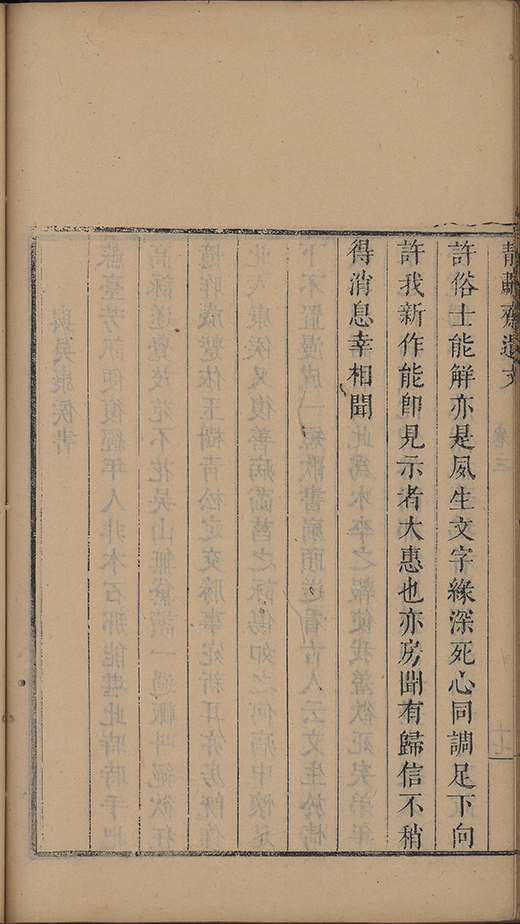 齋遺文
許俗士能觧亦是夙生文字緣深死心同調足下向
許我新作能卽見示者大惠也亦房聞有歸信不稍
得消息幸相聞